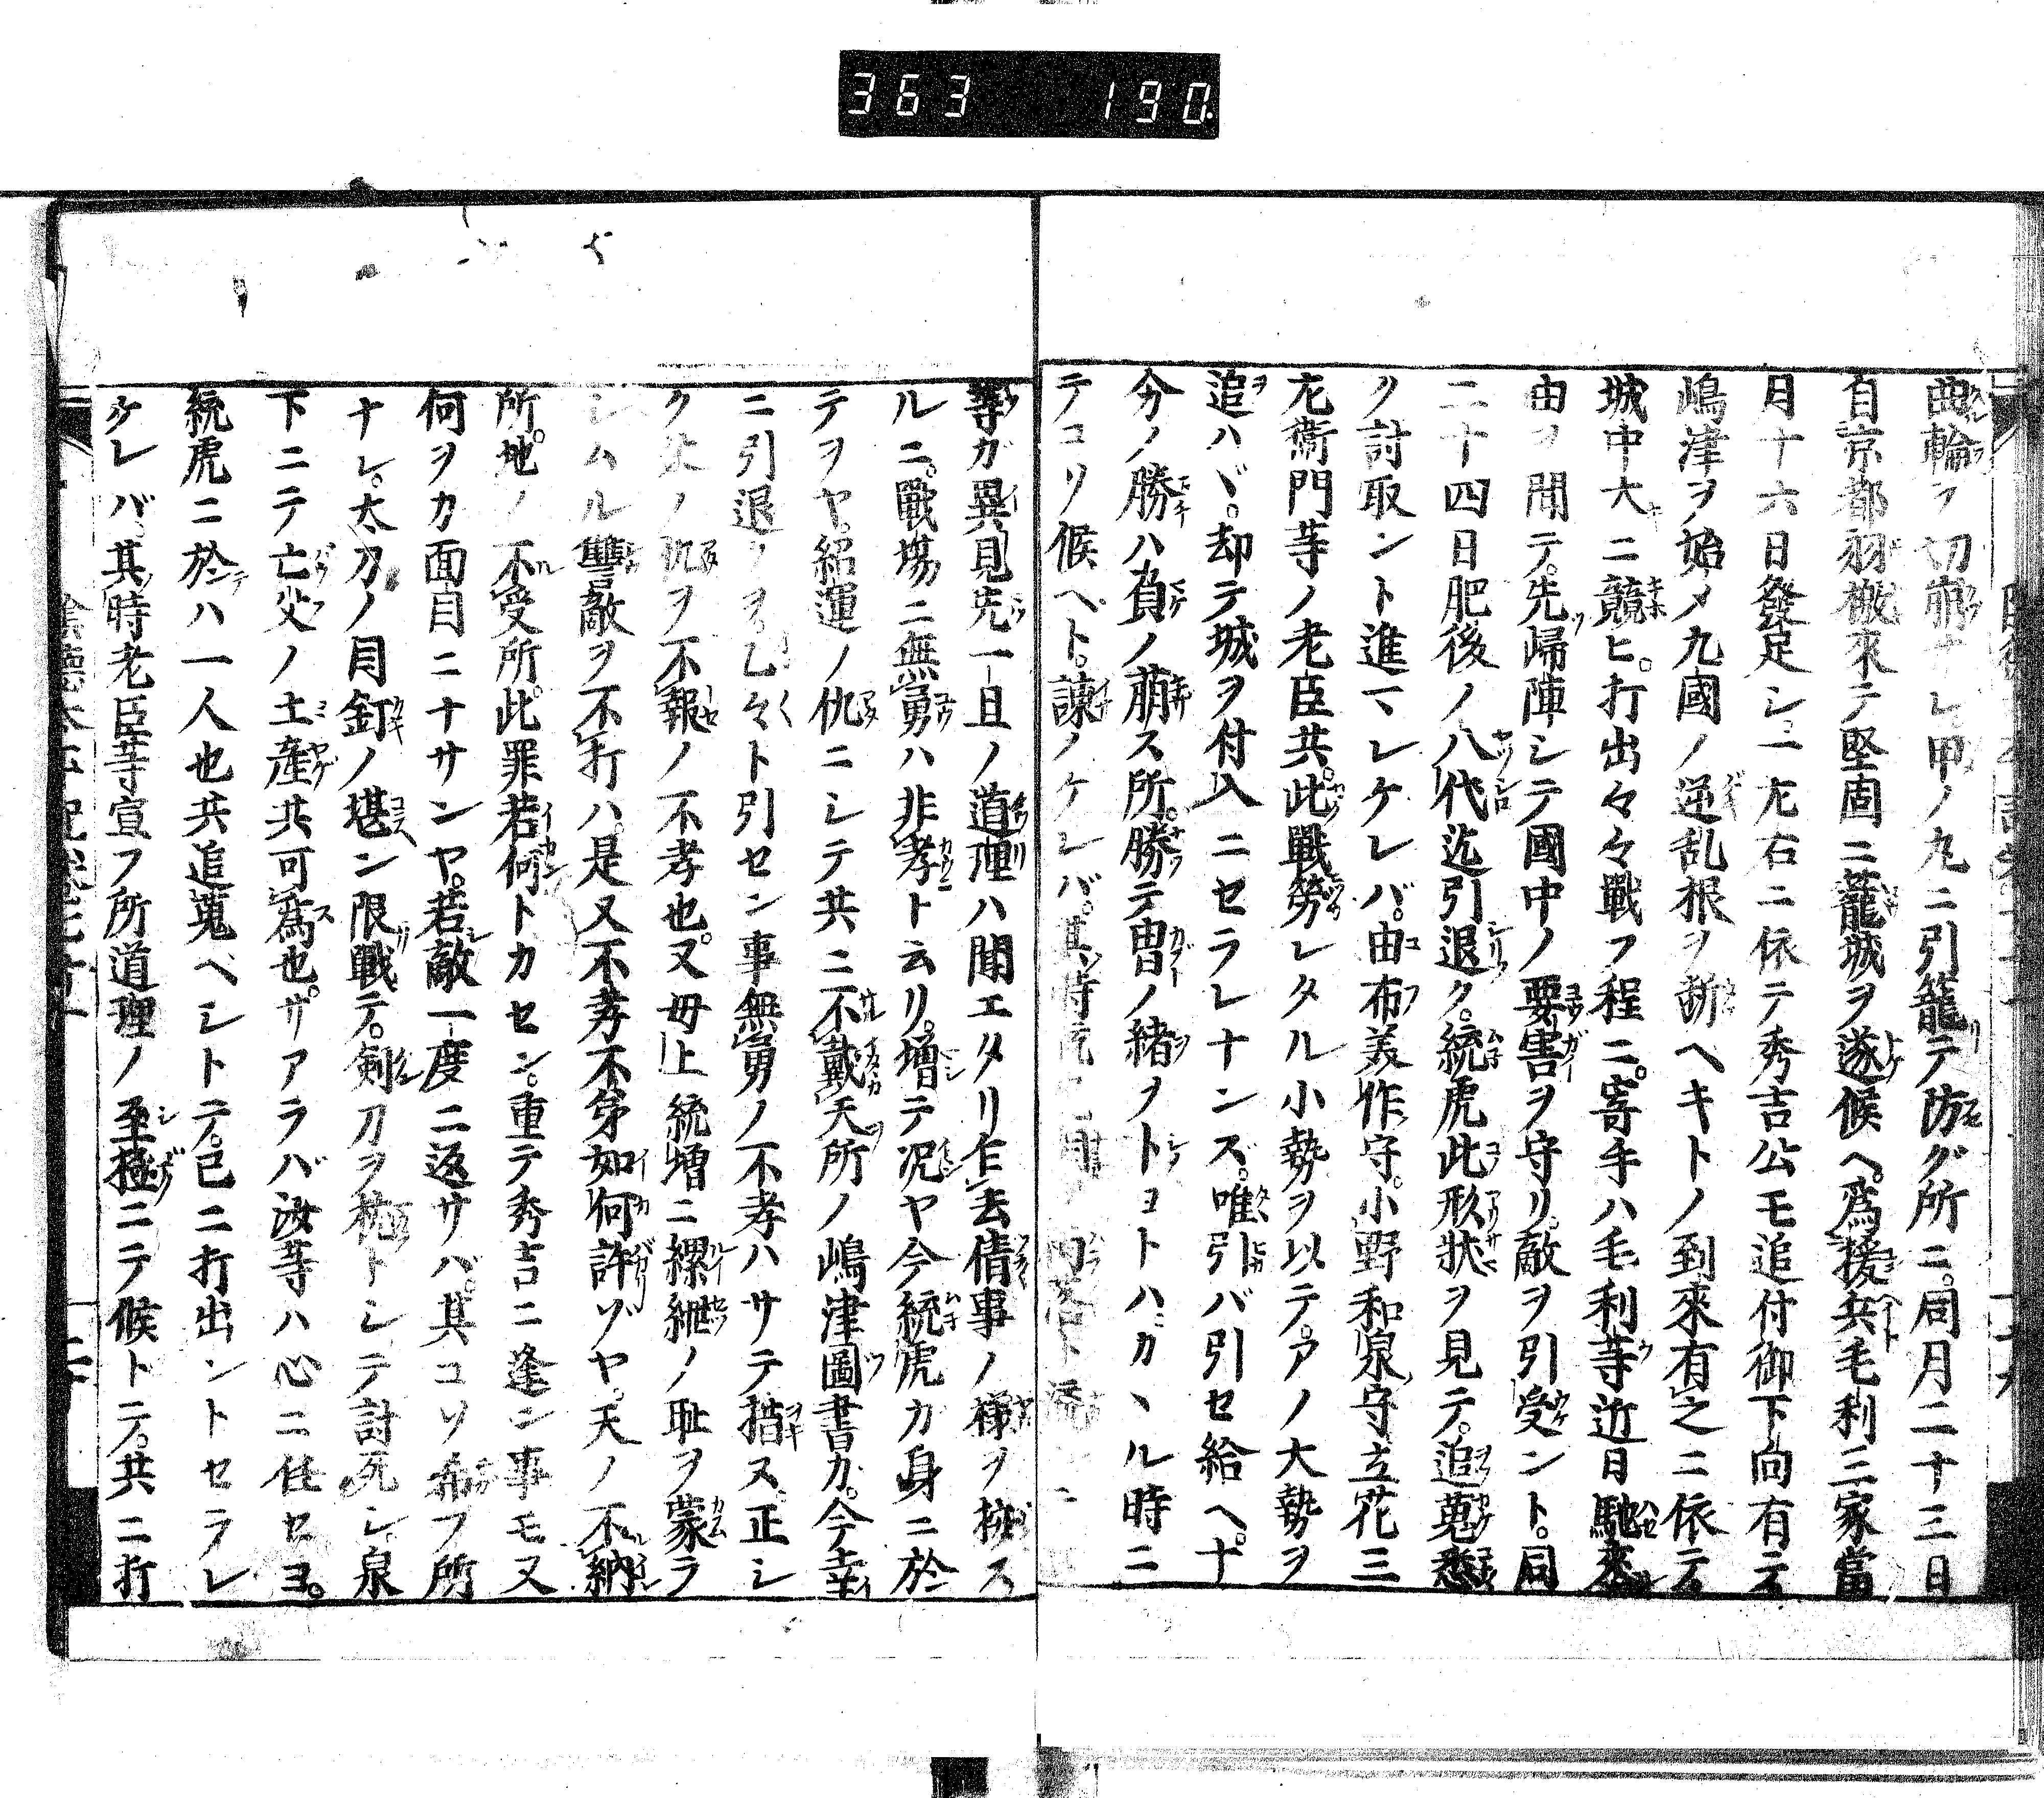 363 190.
曲輪ヲ切崩ナレ。甲ノ丸ニ引籠テ防グ所ニ。同月二十三日
自京都羽檄来テ堅固ニ籠城ヲ遂候ヘ。為援兵毛利三家當
月十六日發足シ。一左右ニ依テ秀吉公モ追付御下向有テ
嶋津ヲ始メ九國ノ逆乱根ヲ断ヘキトノ到來有之ニ依テ。
城中大ニ競ヒ。打出々々戰フ程ニ。寄手ハ毛利等近日馳來
由ヲ聞テ。先帰陣シテ國中ノ要害ヲ守リ。敵ヲ引受ント。同
二十四日肥後ノ八代迄引退ク。統虎此形状ヲ見テ。追蒐悉
ク討取ント進マレケレバ。由布美作守。小野和泉守立花三
左衛門等ノ老臣共。此戰勞レタル小勢ヲ以テ。アノ大勢ヲ
追ハヾ。却テ城ヲ付入ニセラレナンズ。唯引バ引セ給ヘ。十
分ノ勝ハ負ノ萠ス所。勝テ冑ノ緒ヲトコトハカヽル時ニ
テコソ候ヘト。諌ノケレバ。其時統
等ガ異見先一且ノ道理ハ聞エタリ乍去倩事ノ様ヲ按ス
ルニ。戰場ニ無勇ハ非孝ト云リ。増テ况ヤ今統虎カ身ニ於
テヲヤ。紹運ノ仇ニシテ共ニ不戴天所ノ嶋津圖書カ。今幸
ニ引退クヲ。乙々ト引セン事無勇ノ不孝ハサテ措ス。正シ
ク父ノ仇ヲ不報ノ不孝也。又母上統増ニ縲紲ノ耻ヲ蒙ラ
シムル讐敵ヲ不打ハ。是又不孝不弟如何許ゾヤ。天ノ不納
所。地ノ不受所。此罪若何トカセン。重テ秀吉ニ逢ン事モ又
何ヲカ面目ニナサンヤ。若敵一度ニ返サバ。其コソ希フ所
ナレ。太刀ノ目釘ノ堪ン限戰テ。剣刀ヲ枕トシテ討死シ。泉
下ニテ亡父ノ土産共可為也。サアラバ汝等ハ心ニ任セヨ。
統虎ニ於ハ一人也共追蒐ベシトテ。已ニ打出ントセラレ
ケレバ。其時老臣等宣フ所道理ノ至極ニテ候トテ。共ニ打